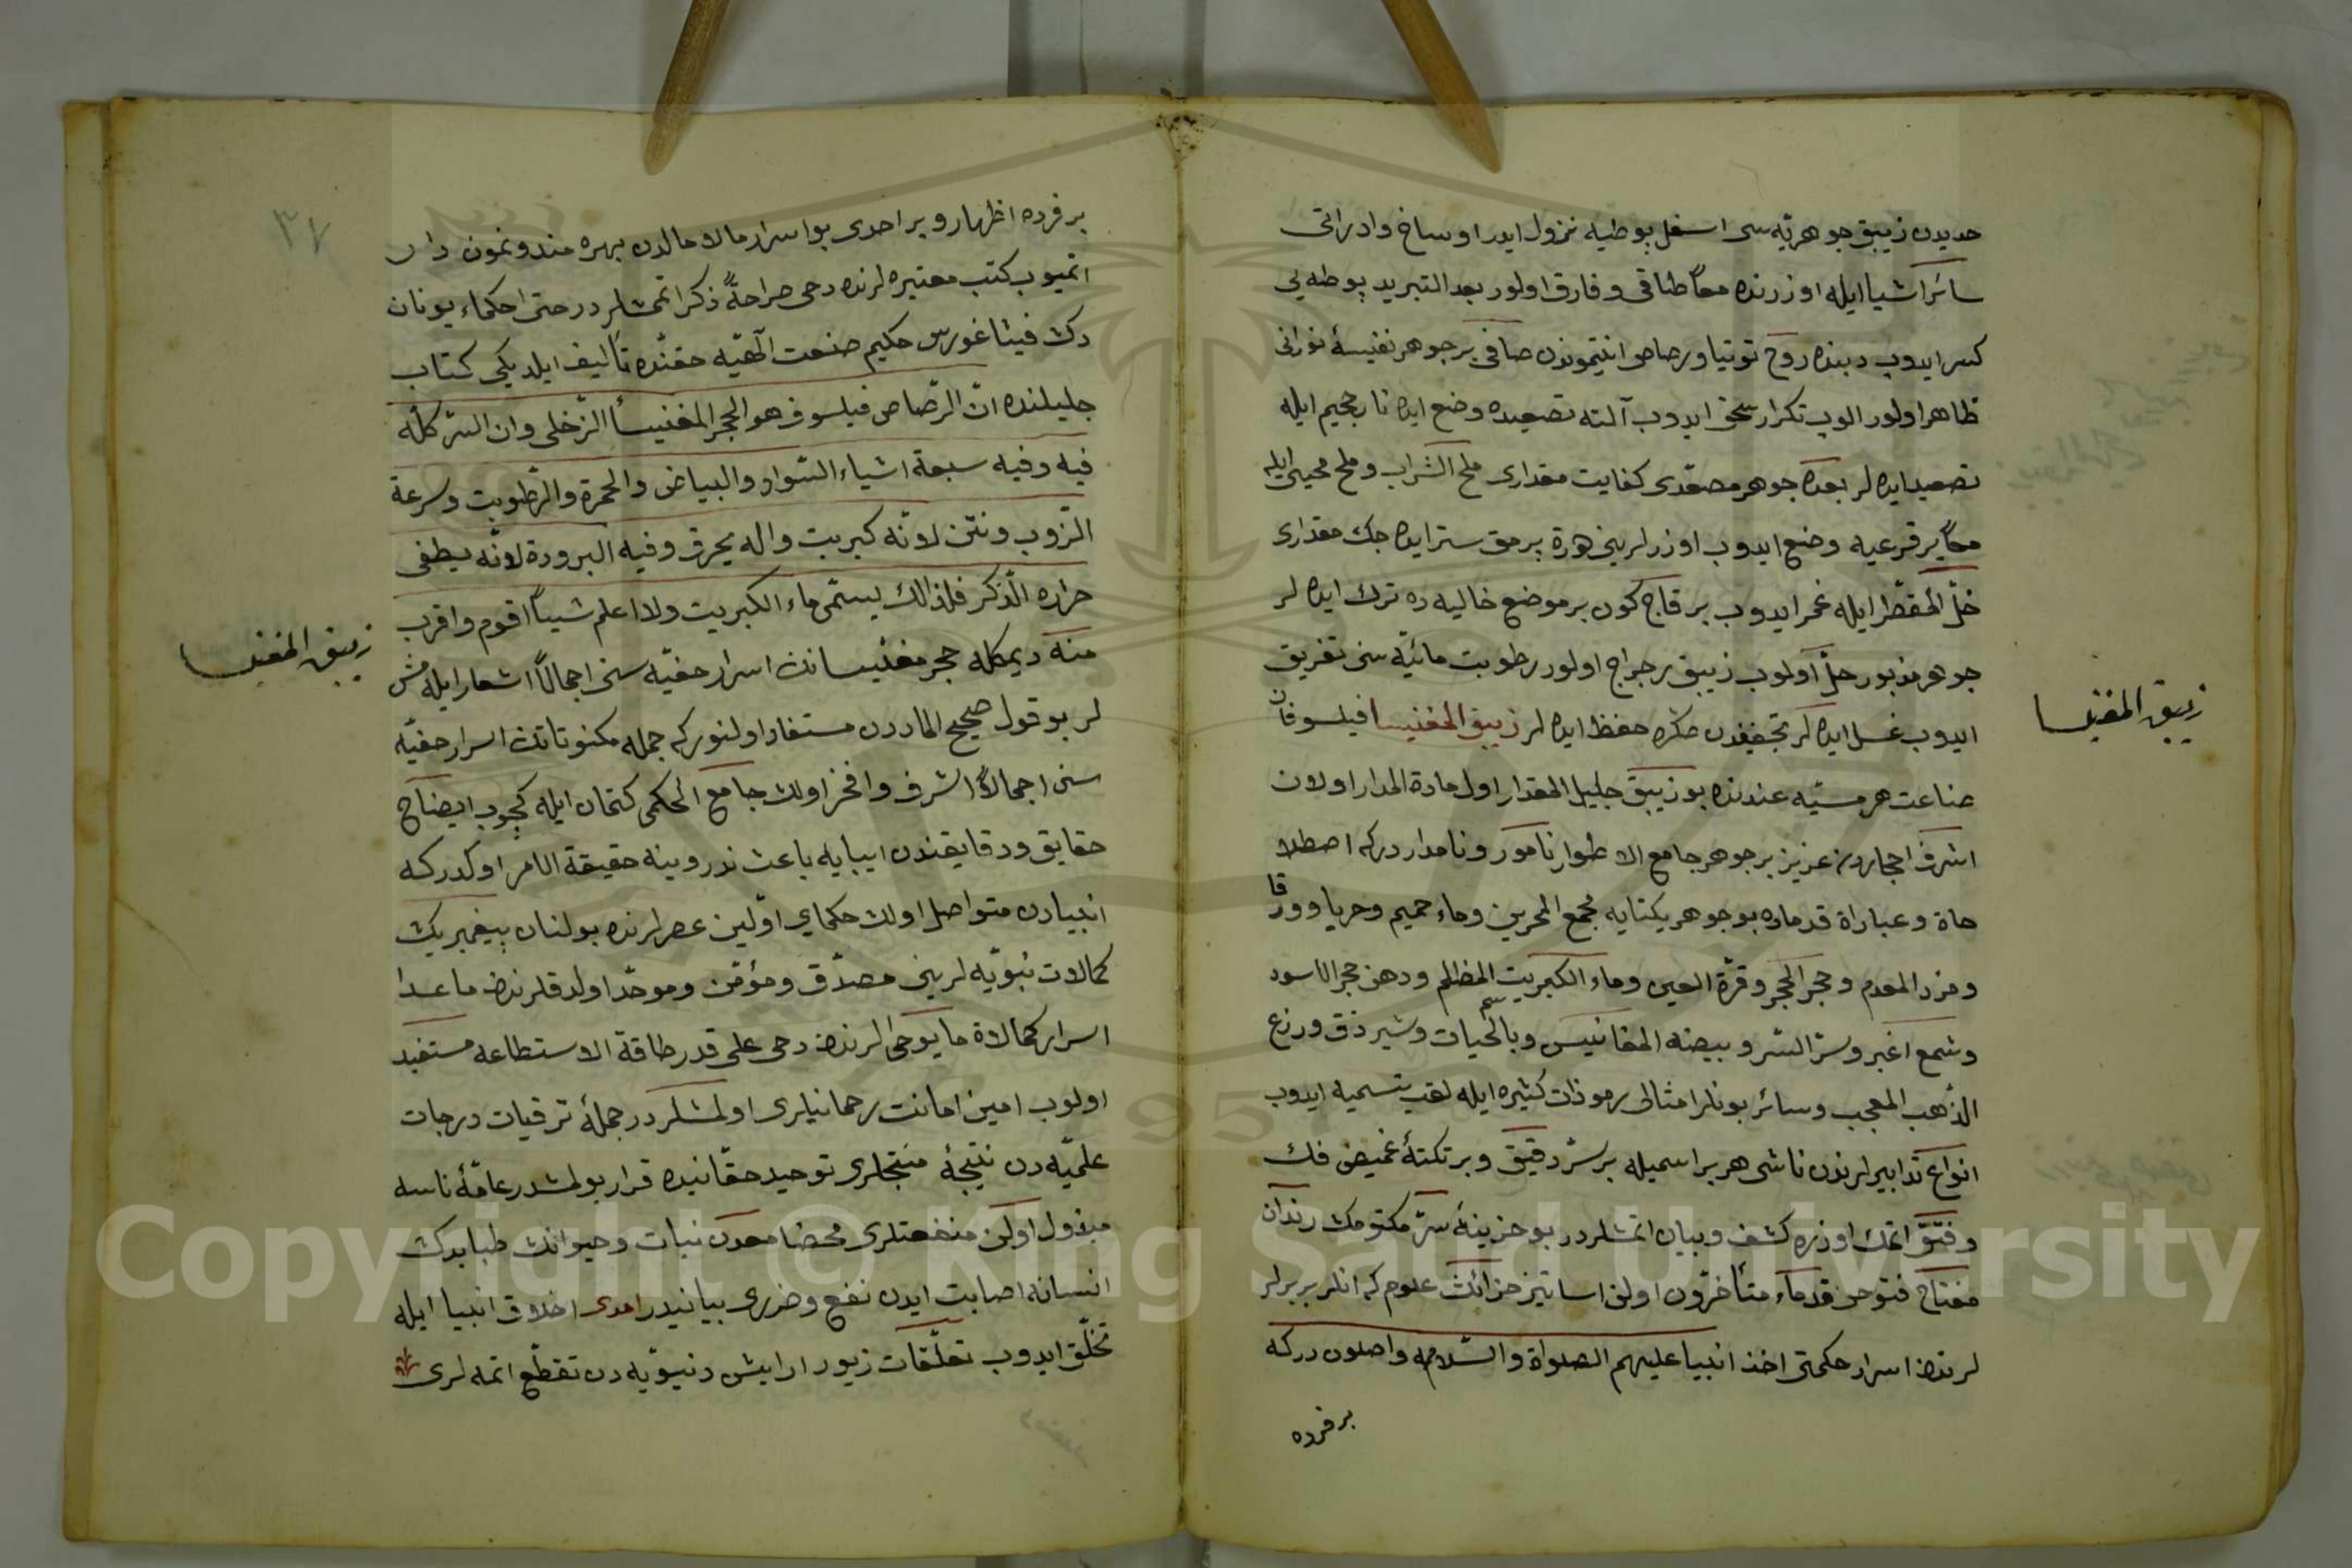 حديدن زيبق جوهريّه سى اسفل بوطيه نزول ايدر اوساخ وادرانى
سائر اشيا ايله اوزرنده معاً طناقى وفارق اولور بعد التبريد بوطه يى
كسر ايدوب دبنده روح توتيا ورصاص انتيمونون صافى بر جوهر نفيسهٔ نورانى
ظاهر اولور الوب تكرار سحق ايدوب آلته تصعيده وضع ايده نار جحيم ايله
تصعيد ايده لر بعده جوهر مصعّدى كفايت مقدارى ملح الشراب وملح محيى ايله
معاً بر قرعيه وضع ايدوب اوزرلرينى هزرة برمق ستر ايده جك مقدارى
خلّ المقطّر ايله غمر ايدوب بر قاج كون بر موضع خاليه ده ترك ايده لر
جوهر مذبور حلّ اولوب زيبق رجراج اولور رطوبت مائيّه سنى تفريق
ايدوب غسل ايده لر تجفيفدن صكره حفظ ايده لر زيبق المغنيسا فيلسوفان
صناعت هرمسيّه عندنده بو زيبق جليل المقدار اول مادة المدار اولان
اشرف احجاردن عزيز بر جوهر جامع الاطوار نامور ونامدار دركه اصطلا
حاة وعباراة قدماده بو جوهر يكتايه مجمع البحرين وماء حميم وحربا وورقا
وفرد المقدم وحجر الحجر وقرّة العين وماء الكبريت المظالم ودهن حجر الاسود
وشمع اغبر وسرّ السّر وبيضه المغانيس وبالحيات وشير ذق ورزع
سم
الذّهب المعجب وسائر بونلر امثالى رموذات كثيره ايله لقب تسميه ايدوب
انواع تدابيرلرندن ناشى هر بر اسميله بر سرّ دقيق وبر نكتهٔ غميض فك
وفتق اتمك اوزره كشف وبيان اتمشلردر بو خزينهٔ سرّ مكتومك رندان
مفتاح فتوحى قدماء متأخرون اولان اساتيز خزائنك علوم كه انلر بربرلر
لرندن اسرار حكمتى اخذ انبيا عليهم الصلواة والسّلامه واصلون دركه
بر فرده
زيبق المغنيسا
٣٧
بر فرده اظهار وبر احدى بو اسرار مالامالدن بهره مند ونمون دار
اتميوب كتب معتبره لرنده دحى صراحةً ذكر اتمشلردر حتى احكماء يونان
دك فيثاغورس حكيم صنعت الٓهيّه حقنده تأليف ايلديكى كتاب
جليلنده انّ الرّصاص فيلسوف هو الحجر المغنيسأ الزّخلى وان السّر كلّه
فيه وفيه سبعة اشياء السّواد والبياض والحمرة والرّطوبت وسرعة
الذّوب ونتن لانّه كبريت واله يحرق وفيه البرودة لانّه يطفى
حراره الذّكر فلذالك يسمّى ماء الكبريت ولا اعلم شيأً اقوم واقرب
منه ديمكله حجر مغنيسانك اسرار خفيّه سنى اجمالاً اشعار ايله مش
لر بو قول صحيح المادن مستفاد اولنور كه جمله مكنوناتك اسرار خفيّه
سنى اجمالاً اشرف وافخر اولان جامع الحكمى كتمان ايله كچوب ايضاح
حقايق ودقايقندن ابايه باعث ندر وينه حقيقة الامر اوكدركه
انبيادن متواصل اولان حكماى اوّلين عصرلرنده بولنان پيغمبريك
كمالات نبويّه لرينى مصدّق ومؤمن وموحّد اولدقلرندن ماعدا
اسرار كمالاة ما يوحى لرندن دحى على قدر طاقة الاستطاعه مستفيد
اولوب امين امانت رحمانيلرى اولمشلردر جملهٔ ترقيات درجات
علميّه دن نتيجهٔ منتجلرى توحيد حقّانيده قرار بولمشدر عامّهٔ ناسه
مبذول اولان منفعتلرى محضا معدن نبات وحيوانك طبايدك
انسانه اصابت ايدن نفع وضررى بيانيدر امدى اخلاق انبيا ايله
تخلّق ايدوب تعلّقات زيور ارايش دنيويّه دن تقطّع اتمه لرى
زيبق المغنيسا